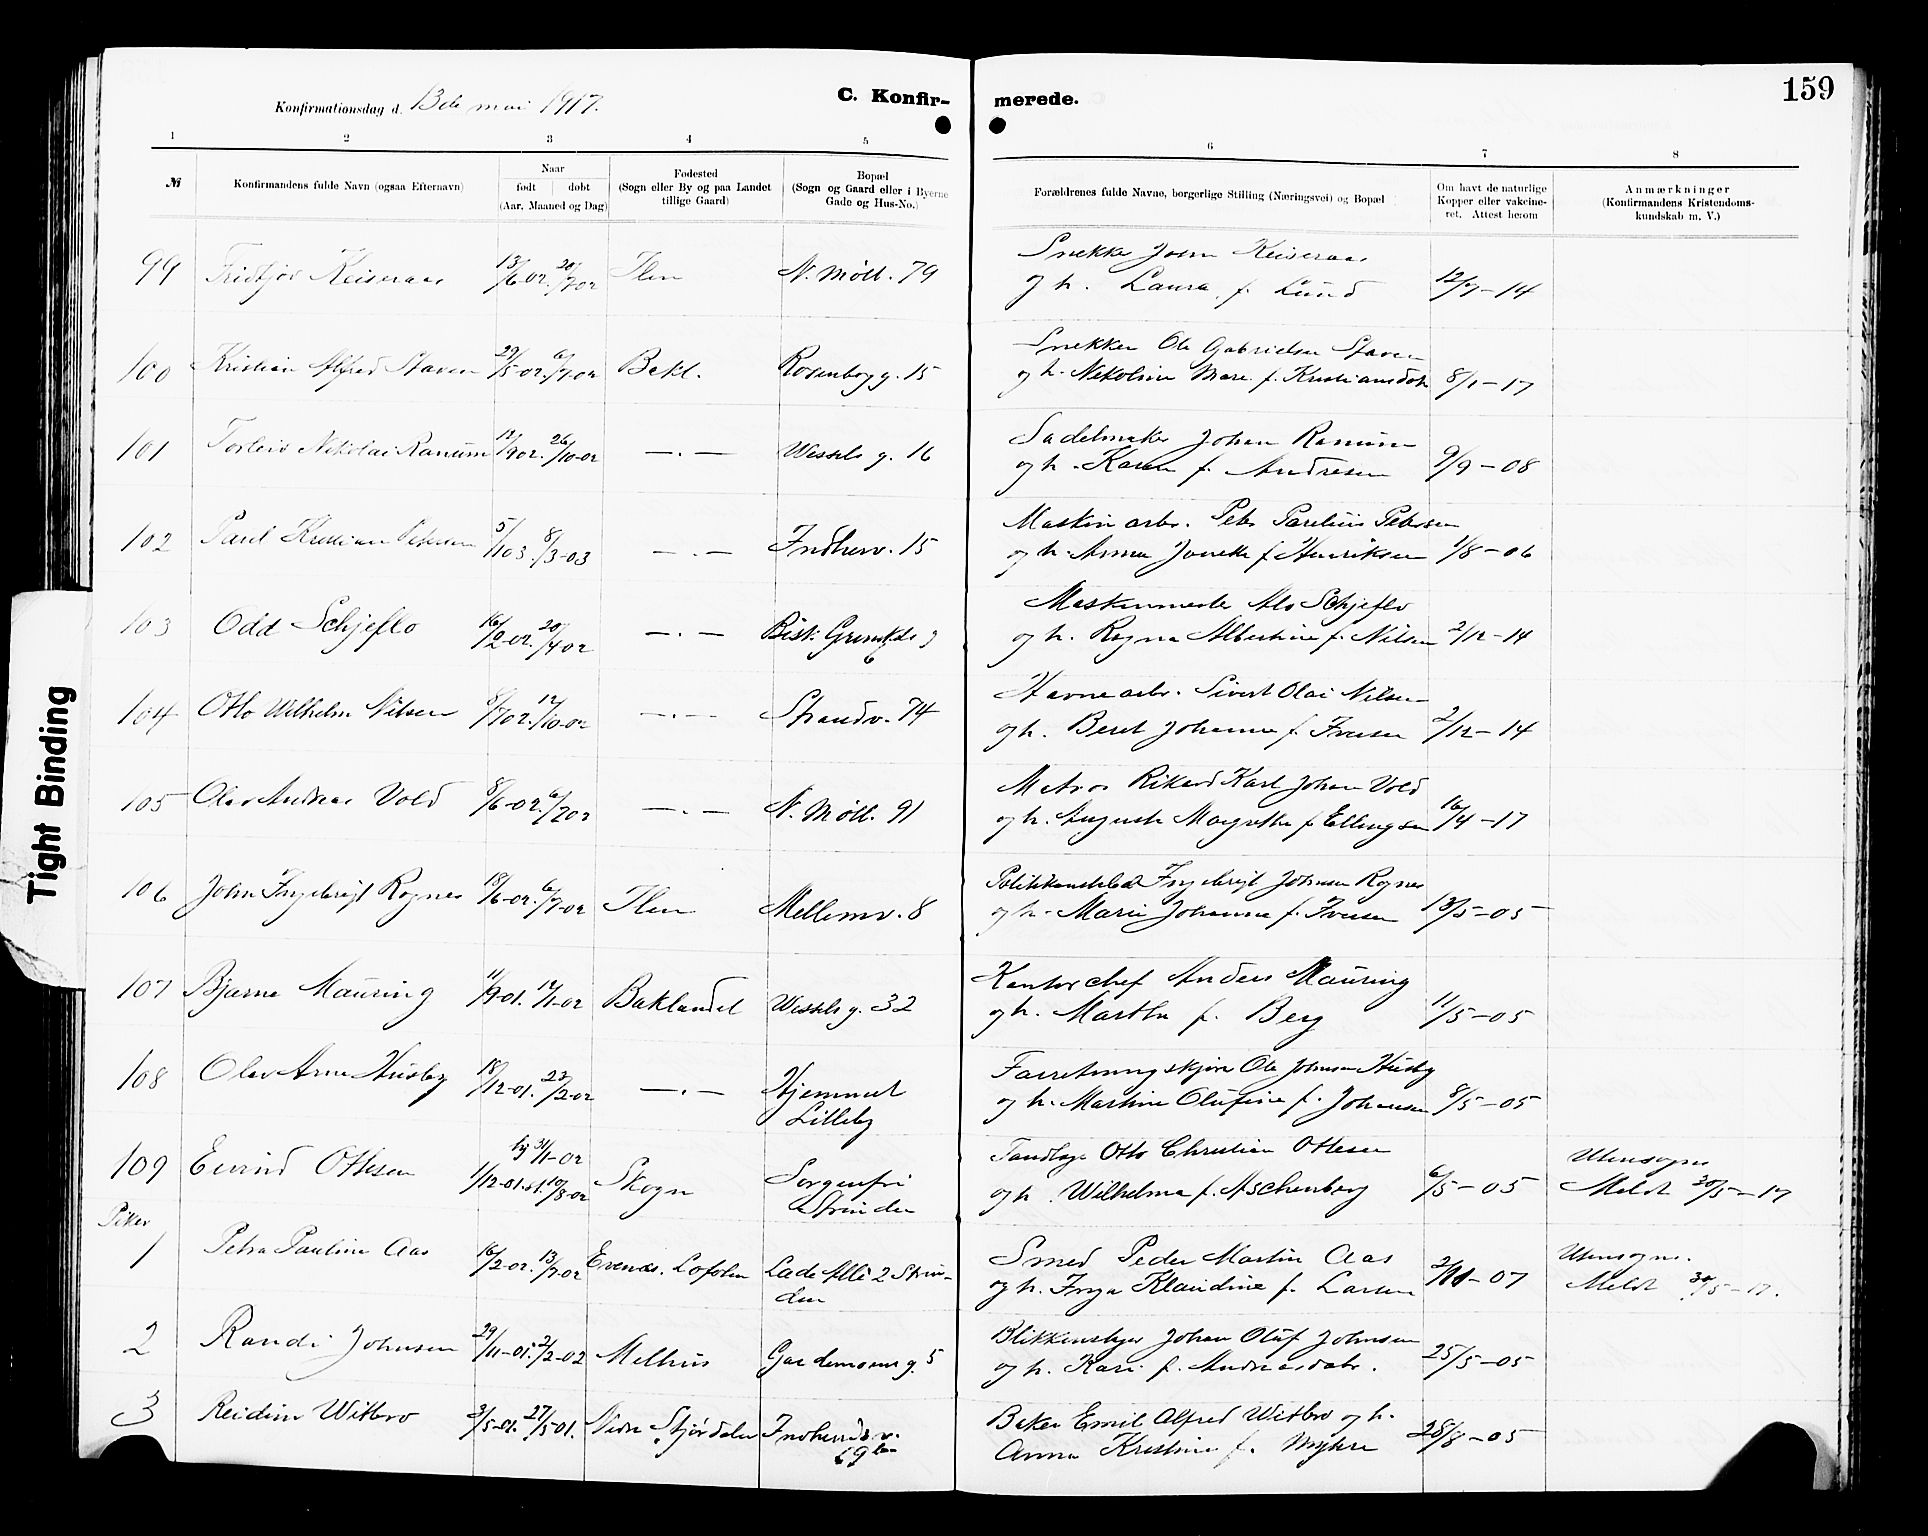 159
Konfirmationsdag d. 13de mai 1917.
C. Konfir-
merede.
1 2 3 4 5 6 7 8
№
Konfirmandens fulde Navn (ogsaa Efternavn)
Naar
født døbt
(Aar, Maaned og Dag)
Fødested
(Sogn eller By og paa Landet
tillige Gaard)
Bopæl
(Sogn og Gaard eller i Byerne
Gade og Hus-No.)
Forældrenes fulde Navne, borgerlige Stilling (Næringsvei) og Bopæl
Om havt de naturlige
Kopper eller vakcine-
ret. Attest herom
Anmærkninger
(Konfirmandens Kristendoms-
kundskab m. V.)
99 Fridtjov Keiseraas 13/6-02. 20/7 02 Ilen N. Møll. 79
Snekker John Keiseraas
og h. Laura f. Lund 12/7-14
100 Kristian Alfred Staven 29/5-02. 6/7-02 Bakl. Rosenborg g. 15
Snekker Ole Gabrielsen Staven
og h. Nikoline Mare. f. Kristiansdatr 8/1-17
101 Torleiv Nikolai Ranum 12/9 02. 26/10-02 —.— Wessels g. 16
Sadelmaker Johan Ranum
og h. Karen f. Andresen 9/9-08
102 Paul Kristian Petersen 5/1 03. 8/3-03 —.— Indherv. 15
Maskinarb. Peter Parelius Petersen
og h. Anna Jonette f. Henriksen 1/8-06
103 Odd Schjeflo 16/2-02. 20/4 02 —.— Bisk. Grimkels g
6
Maskinmester Nls Schjeflo
og h. Ragna Albertine f. Nilsen 2/12-14
104 Otto Wilhelm Nilsen 8/7 02. 12/10-02 —.— Strandv. 74
Havnearb. Sivert Olai Nilsen
og h. Beret Johanna f. Iversen 2/12-14
105 Olav Andreas Vold 8/6-02. 6/7 02 —.— N. Møll. 91
Matros Rikard Karl Johan Vold
og h. Augusta Margrethe f. Ellingsen 16/4-17
106 John Ingebrigt Rognes 18/6-02. 6/7-02 Ilen Mellemv. 8
Politikonstabel Ingebrigt Johnsen Rognes
og h. Marie Johanna f. Iversen 13/5-05
107 Bjarne Mauring 11/9-01. 12/1-02 Baklandet Wessels g. 32
Kontorchef Anders Mauring
og h. Martha f. Berg 11/5-05
108 Olav Arne Husby 18/12-01. 23/2-02 —.— Hjemmet
Lilleby
Forretningskjører Ole Johnsen Husby
og h. Martine Olufine f. Johansen 8/5-05
109 Eivind Ottesen 1/12-01. hj 31/1-02
st. 10/8-02 Skogn Sorgenfri
Strinden
Tandlæge Otto Christian Ottesen
og h. Wilhelma f. Aschenborg 6/5-05 Utensogns
Meldt 30/5-17
Piker
1 Petra Pauline Aas 16/2-02. 13/7-02 Evenes. Lofoten Lade Alle 2 Strin-
den
Smed Peder Martin Aas
og h. Inga Klaudine f. Larsen 2/11-07 Utensogns.
Meldt 30/5-17.
2 Randi Johnsen 29/11-01. 2/2-02 Melhus Gardemoens g. 5
Blikkenslager Johan Oluf Johnsen
og h. Kari f. Andreasdatr. 25/5-05
3 Reidun Witbro 3/5-01. 27/5 01. Nedre Stjørdalen Indherredsv.
69b
Baker Emil Alfred Witbro og h.
Anna Kristine f. Myhre 28/8-05
Tight Binding